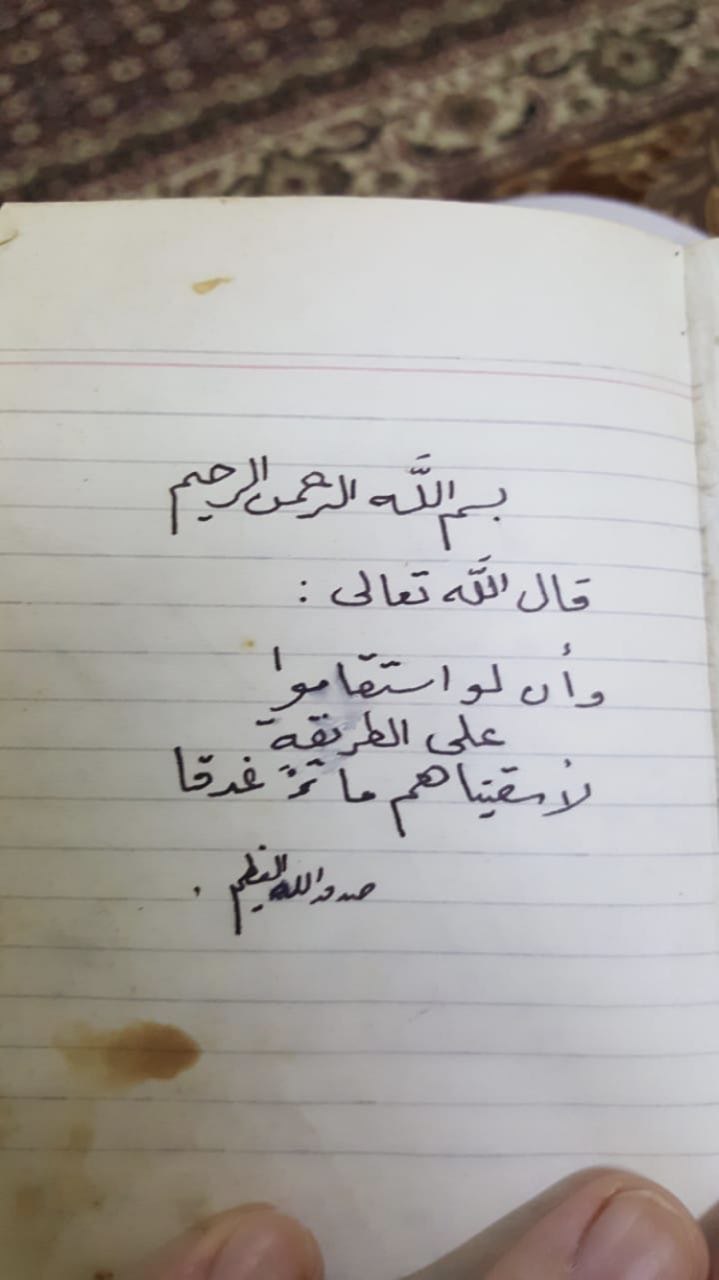 بسم اللَّه الرحمن الرحيم
قال اللَّه تعالى :
وأن لو استقاموا
على الطريقة
لأسقيناهم ماءً غدقا
صدق الله العظيم .